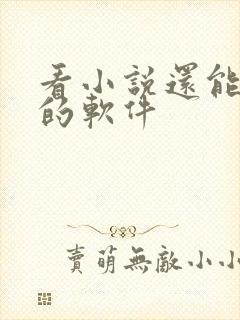 看小說還能
的軟件
賣萌無敵小小